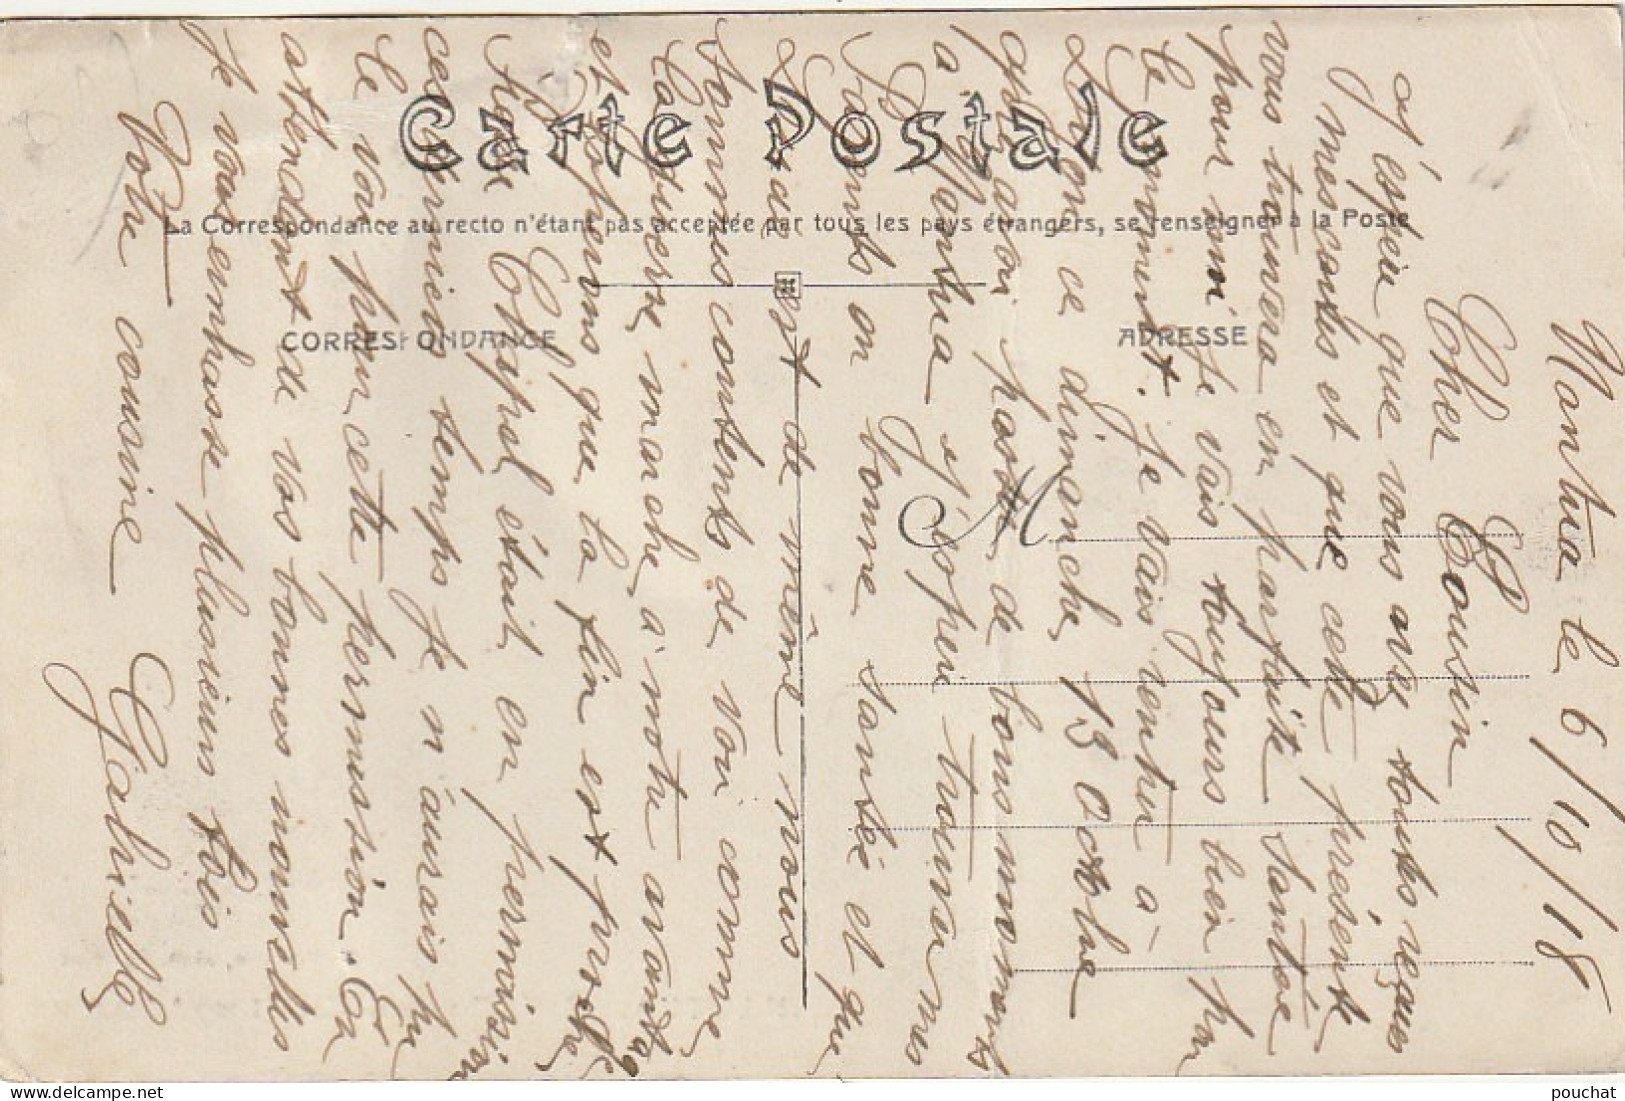 Carte Postale
La Correspondance au recto n'étant pas acceptée par tous les pays étrangers, se renseigner à la Poste
CORRESPONDANCE
ADRESSE
M
Nantua le 6/10/18
Cher Cousin
J'éspère que vous avez toutes reçues
mes cartes et que cette présente
vous trouvera en parfaite santée
pour moi je vais toujours bien pour
le moment. Je vais rentrer à
Lyon ce dimanche, 13 octobre
après avoir passer de bons moments
à Nantua J'éspère trouver mes
parents en bonne santée et que
Lucie est de même nous
sommes contents de voir comme
la guerre marche à notre avantage
et espérons que la fin est proche,
Chapel était en permission
ces derniers temps je n'aurais pu
le voir pour cette permission. En
attendant de vos bonnes nouvelles
Je vous embrasse plusieurs fois
Votre cousine Gabrielle
pouchat